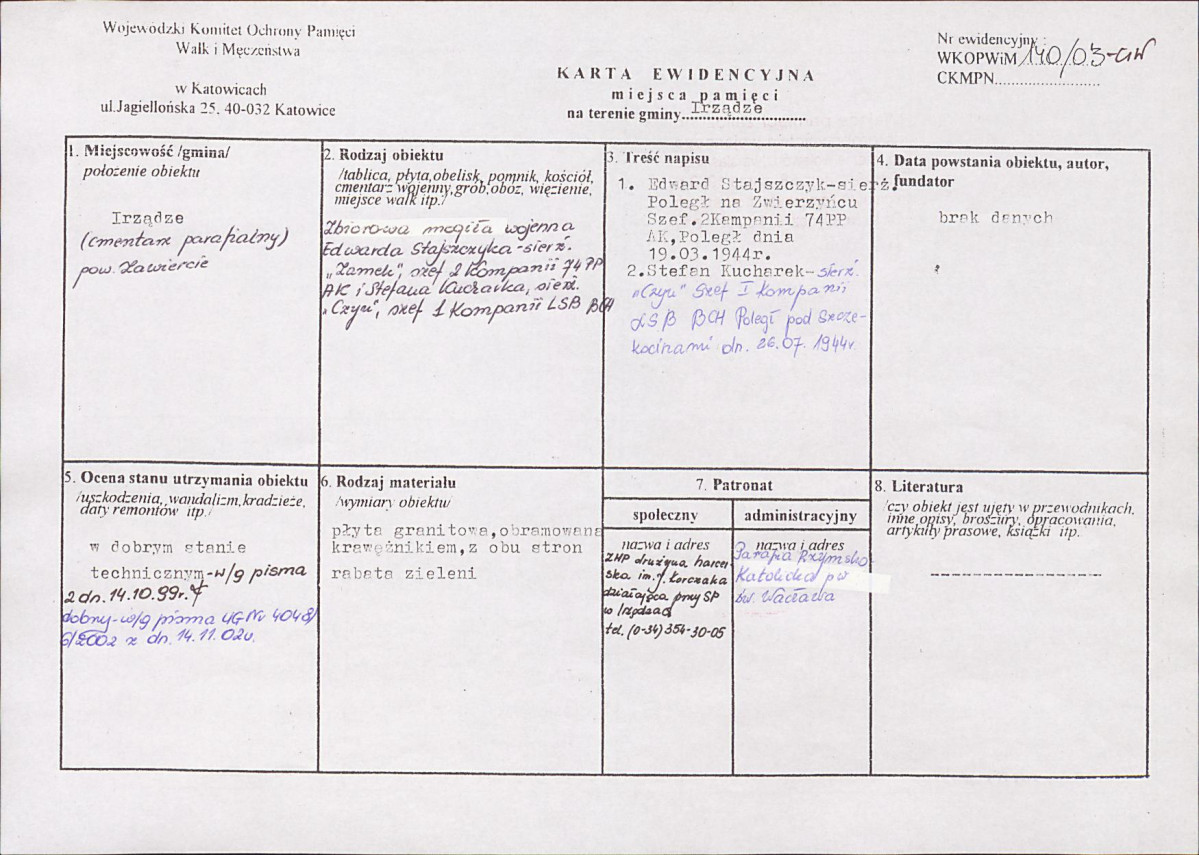 Wojewódzki Komitet Ochrony Pamięci
Walk i Męczeństwa
w Katowicach
ul.Jagiellońska 25, 40-032 Katowice
Nr ewidencyjny :
WKOPWiM 140/03-CW
CKMPN..........................
KARTA EWIDENCYJNA
miejsca pamięci
na terenie gminy Irządze
1. Miejscowość /gmina/
położenie obiektu
Irządze
(cmentarz parafialny)
pow. Zawiercie
2. Rodzaj obiektu
/tablica, płyta,obelisk, pomnik, kościół,
cmentarz wojenny,grób,obóz, więzienie,
miejsce walk itp./
Zbiorowa mogiła wojenna
Edwarda Stajszczyka-sierż.
„Zamek", szef 2 Kompanii 74 PP
AK i Stefana Kucharka, sierż.
„Czyn", szef 1 Kompanii LSB BCH
3. Treść napisu
1. Edward Stajszczyk-sierż.
Poległ na Zwierzyńcu
Szef.2Kampanii 74PP
AK,Poległ dnia
19.03.1944r.
2.Stefan Kucharek-sierż.
„Czyn" Szef I Kompanii
LSB BCH Poległ pod Szcze-
kocinami dn. 26.07. 1944r.
4. Data powstania obiektu, autor,
fundator
brak danych
5. Ocena stanu utrzymania obiektu
/uszkodzenia, wandalizm,kradzieże,
daty remontów itp./
w dobrym stanie
technicznym-w/g pisma
z dn. 14.10.99r.
dobny-w/g pisma UG Nr 4048/
6/2002 z dn. 14.11.02r.
6. Rodzaj materiału
/wymiary obiektu/
płyta granitowa,obramowana
krawężnikiem,z obu stron
rabata zieleni
7. Patronat
społeczny
nazwa i adres
ZHP drużyna harcer
ska im. J. Korczaka
działająca przy SP
w Irządzach
tel. (0-34) 354-30-05
administracyjny
nazwa i adres
Parafia Rzymsko-
Katolicka pw
św. Wacława
8. Literatura
/czy obiekt jest ujęty w przewodnikach,
inne opisy, broszury, opracowania,
artykuły prasowe, książki itp.
--------------------